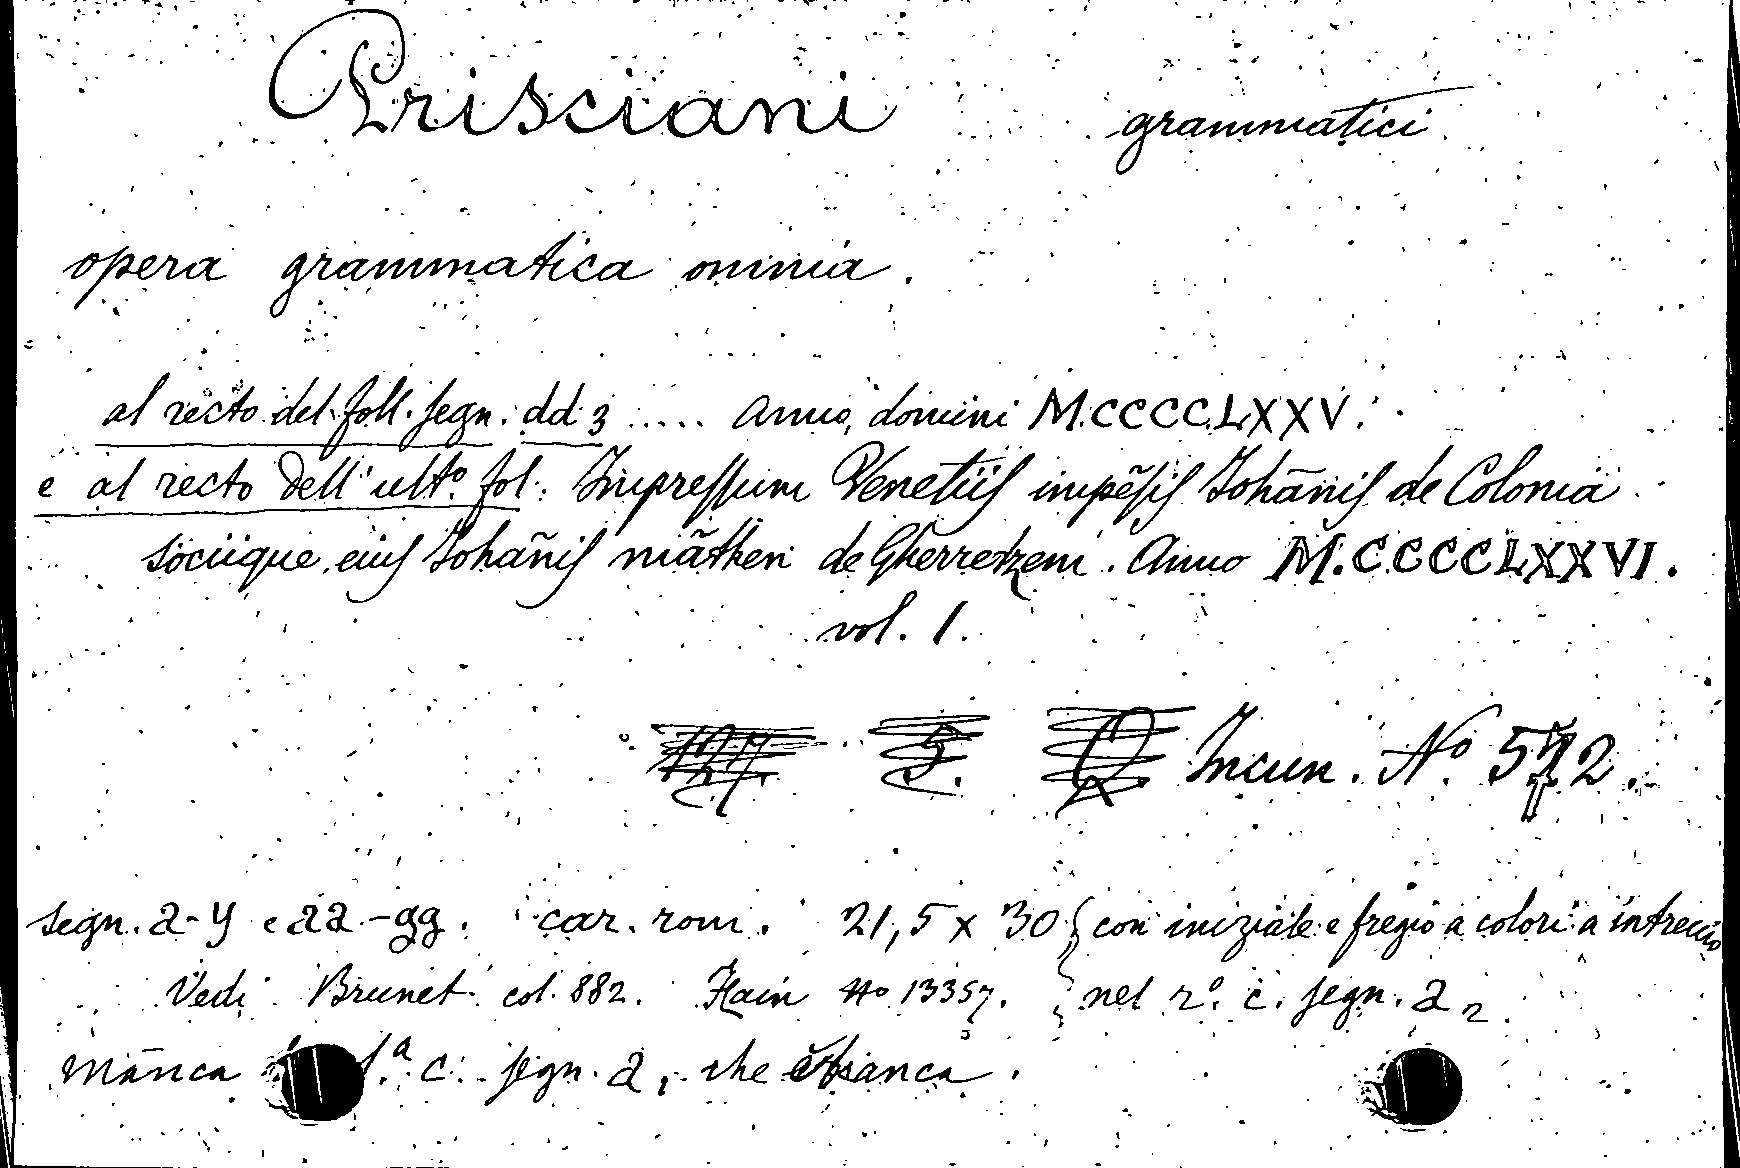 Prisciani grammatici
opera grammatica omnia.
al recto del foll. segn. dd 3 ..... Anno, domini M.CCCCLXXV.
e al recto dell' ult.º fol.: Impressum Venetiis impēsis Johānis de Colonia
sociique eius Johānis māthen de Gherretzem. Anno M.CCCCLXXVI.
vol. 1.
Incun. Nº 572.
segn. a-y e aa-gg. car. rom. 21,5 x 30 con iniziale e fregio a colori a intreccio
Vedi Brunet col. 882. Hain Nº 13357. nel rº. c. segn. a 2.
Manca 1.ª c. segn. a, che è bianca.